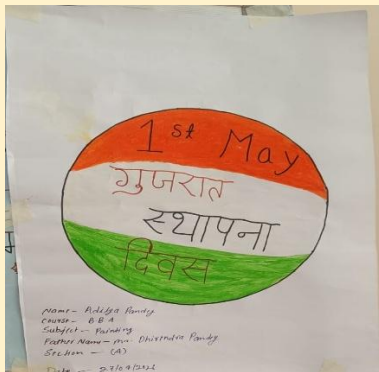 1st May
गुजरात
स्थापना
दिवस
Name - Aditya Pandey
Course - BBA
Subject - Painting
Father Name - Mr. Dhirendra Pandey
Section - (A)
Date -